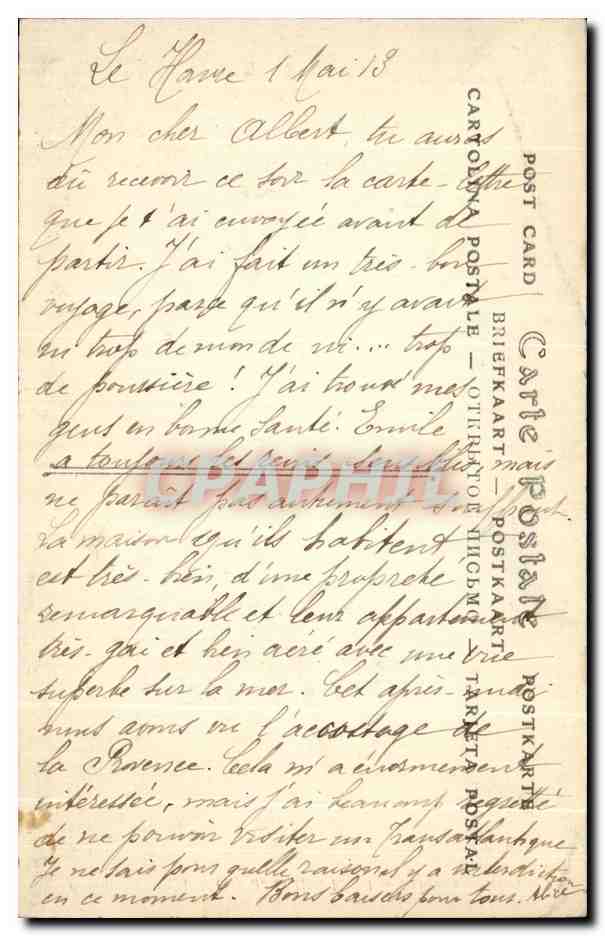 Le Havre 1 Mai 13
Mon cher Albert, tu auras
dû recevoir ce soir la carte-lettre
que je t'ai envoyée avant de
partir. J'ai fait un très-bon
voyage, parce qu'il n'y avait
ni trop de monde ni.... trop
de poussière! J'ai trouvé mes
gens en bonne santé. Emile
a toujours les reins sensibles, mais
ne paraît pas autrement souffrant.
La maison qu'ils habitent
est très-bien, d'une propreté
remarquable et leur appartement
très-gai et bien aéré avec une vue
superbe sur la mer. Cet après-midi
nous avons vu l'accostage de
la Provence. Cela m'a énormément
intéressée, mais j'ai beaucoup regretté
de ne pouvoir visiter un Transatlantique
Je ne sais pour quelle raison il y a interdiction
en ce moment. Bons baisers pour tous.
CARTOLINA POSTALE — ОТКРЫТОЕ ПИСЬМО — TARJETA POSTAL
BRIEFKAART — POSTKAART
POST CARD Carte Postale POSTKARTE
CPAPHIL